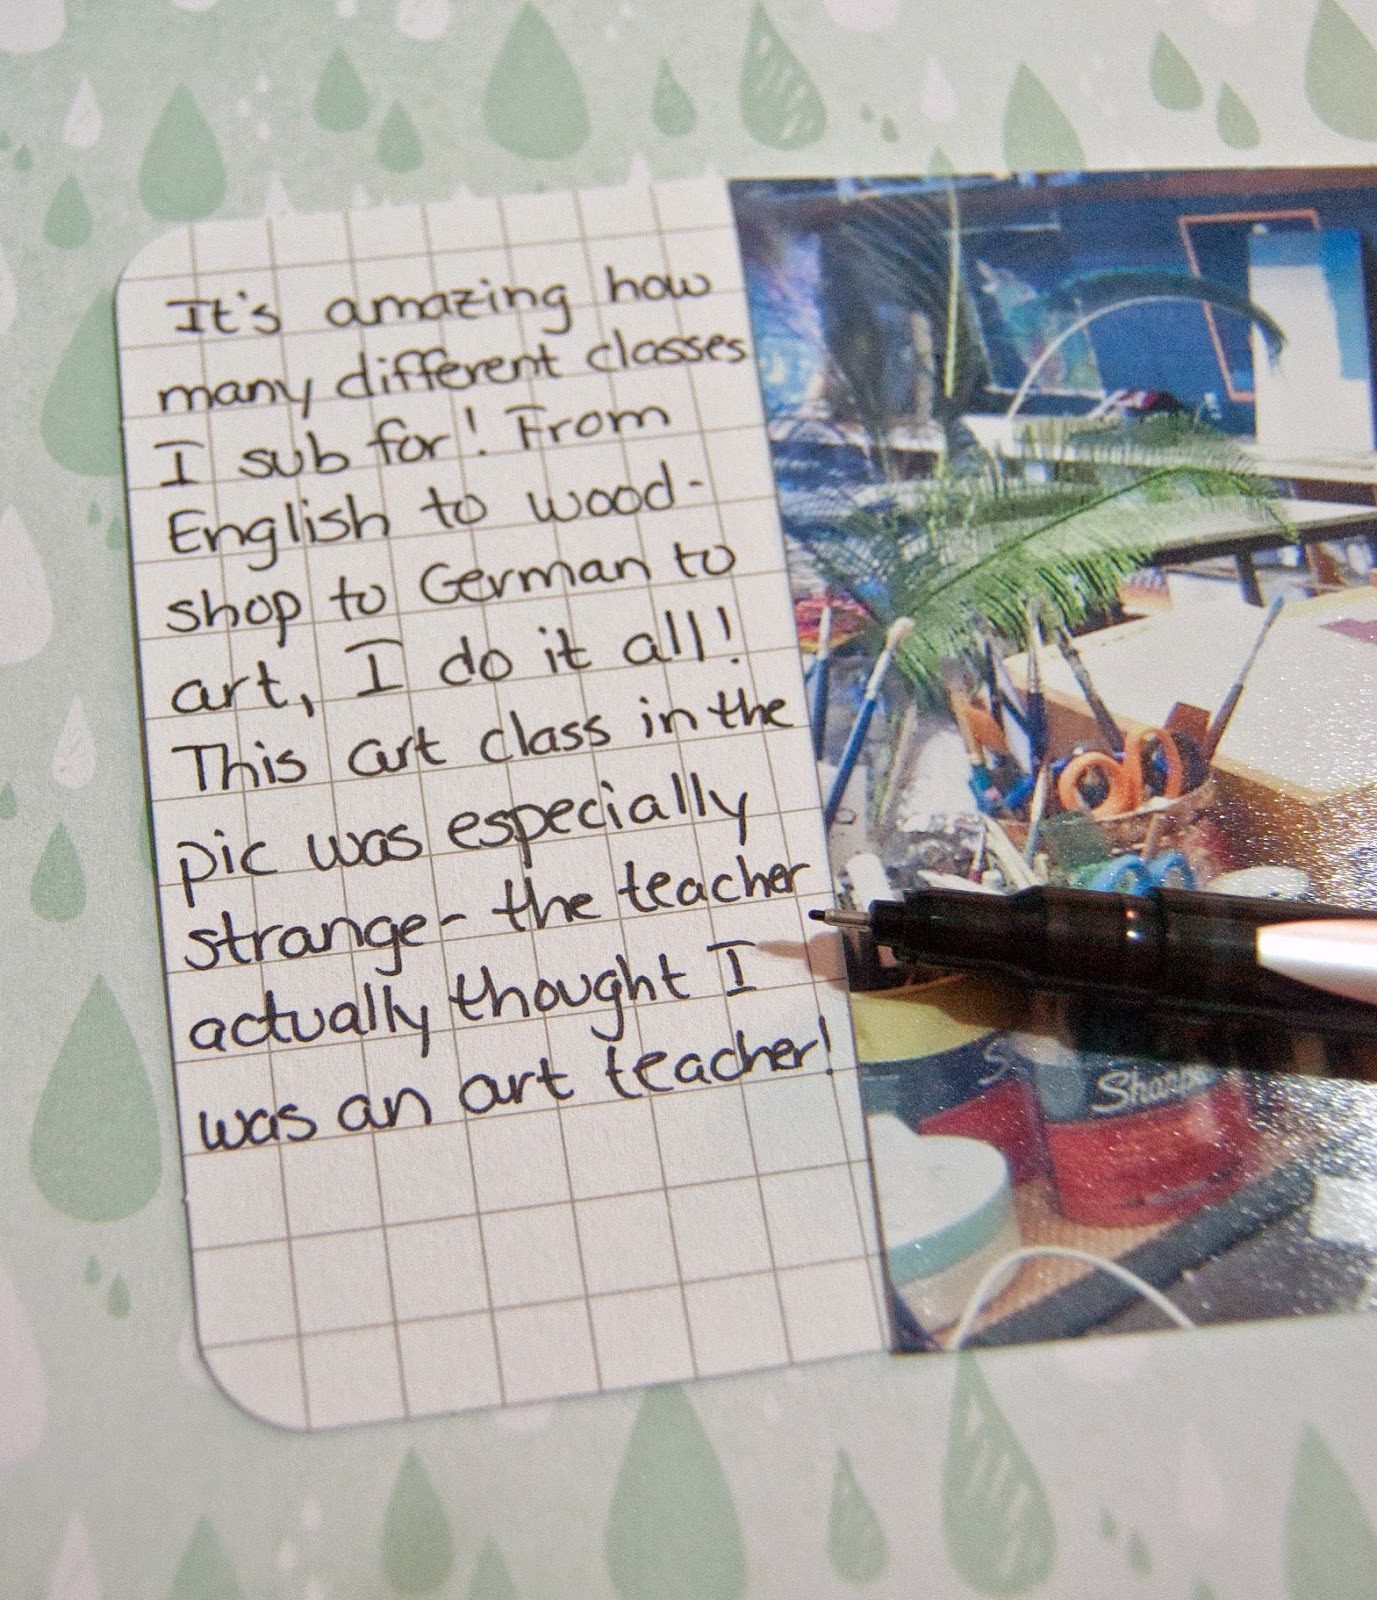 It's amazing how
many different classes
I sub for! From
English to wood-
shop to German to
art, I do it all!
This art class in the
pic was especially
strange- the teacher
actually thought I
was an art teacher!
Sharpie